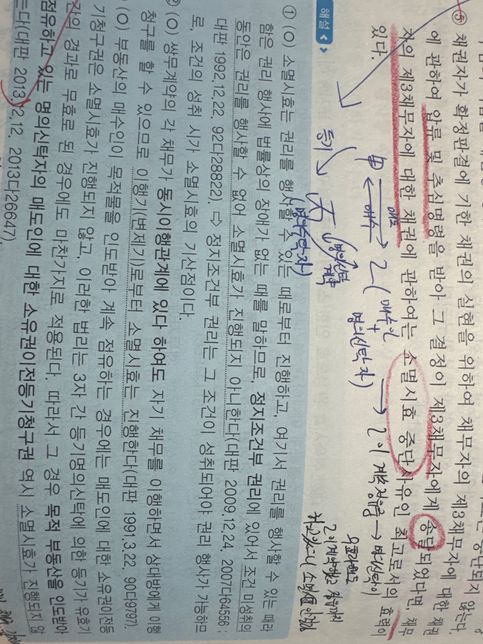 ⑤ 채권자가 확정판결에 기한 채권의 실현을 위하여 채무자의 제3채무자에 대한 채권
에 관하여 압류 및 추심명령을 받아 그 결정이 제3채무자에게 송달되었다면, 채무
자의 제3채무자에 대한 채권에 관하여는 소멸시효 중단사유인 최고로서의 효력이
있다.
甲
매도
매수
乙
(매수인
+
명의신탁자)
→ 乙이 계속점유 →
등기
丙
해설
① (O) 소멸시효는 권리를 행사할 수 있는 때로부터 진행하고, 여기서 권리를 행사할 수 있는 때라
함은 권리 행사에 법률상의 장애가 없는 때를 말하므로, 정지조건부 권리에 있어서 조건 미성취의
동안은 권리를 행사할 수 없어 소멸시효가 진행되지 아니한다(대판 2009.12.24, 2007다64556 ;
대판 1992.12.22, 92다28822). ⇨ 정지조건부 권리는 그 조건이 성취되어야 권리 행사가 가능하므
로, 조건의 성취 시가 소멸시효의 기산점이다.
② (O) 쌍무계약의 각 채무가 동시이행관계에 있다 하여도 자기 채무를 이행하면서 상대방에게 이행
청구를 할 수 있으므로 이행기(변제기)로부터 소멸시효는 진행한다(대판 1991.3.22, 90다9797).
(O) 부동산의 매수인이 목적물을 인도받아 계속 점유하는 경우에는 매도인에 대한 소유권이전등
기청구권은 소멸시효가 진행되지 않고, 이러한 법리는 3자 간 등기명의신탁에 의한 등기가 유효기
간의 경과로 무효로 된 경우에도 마찬가지로 적용된다. 따라서 그 경우 목적 부동산을 인도받아
점유하고 있는 명의신탁자의 매도인에 대한 소유권이전등기청구권 역시 소멸시효가 진행되지 않
는다(대판 2013.12.12, 2013다26647).